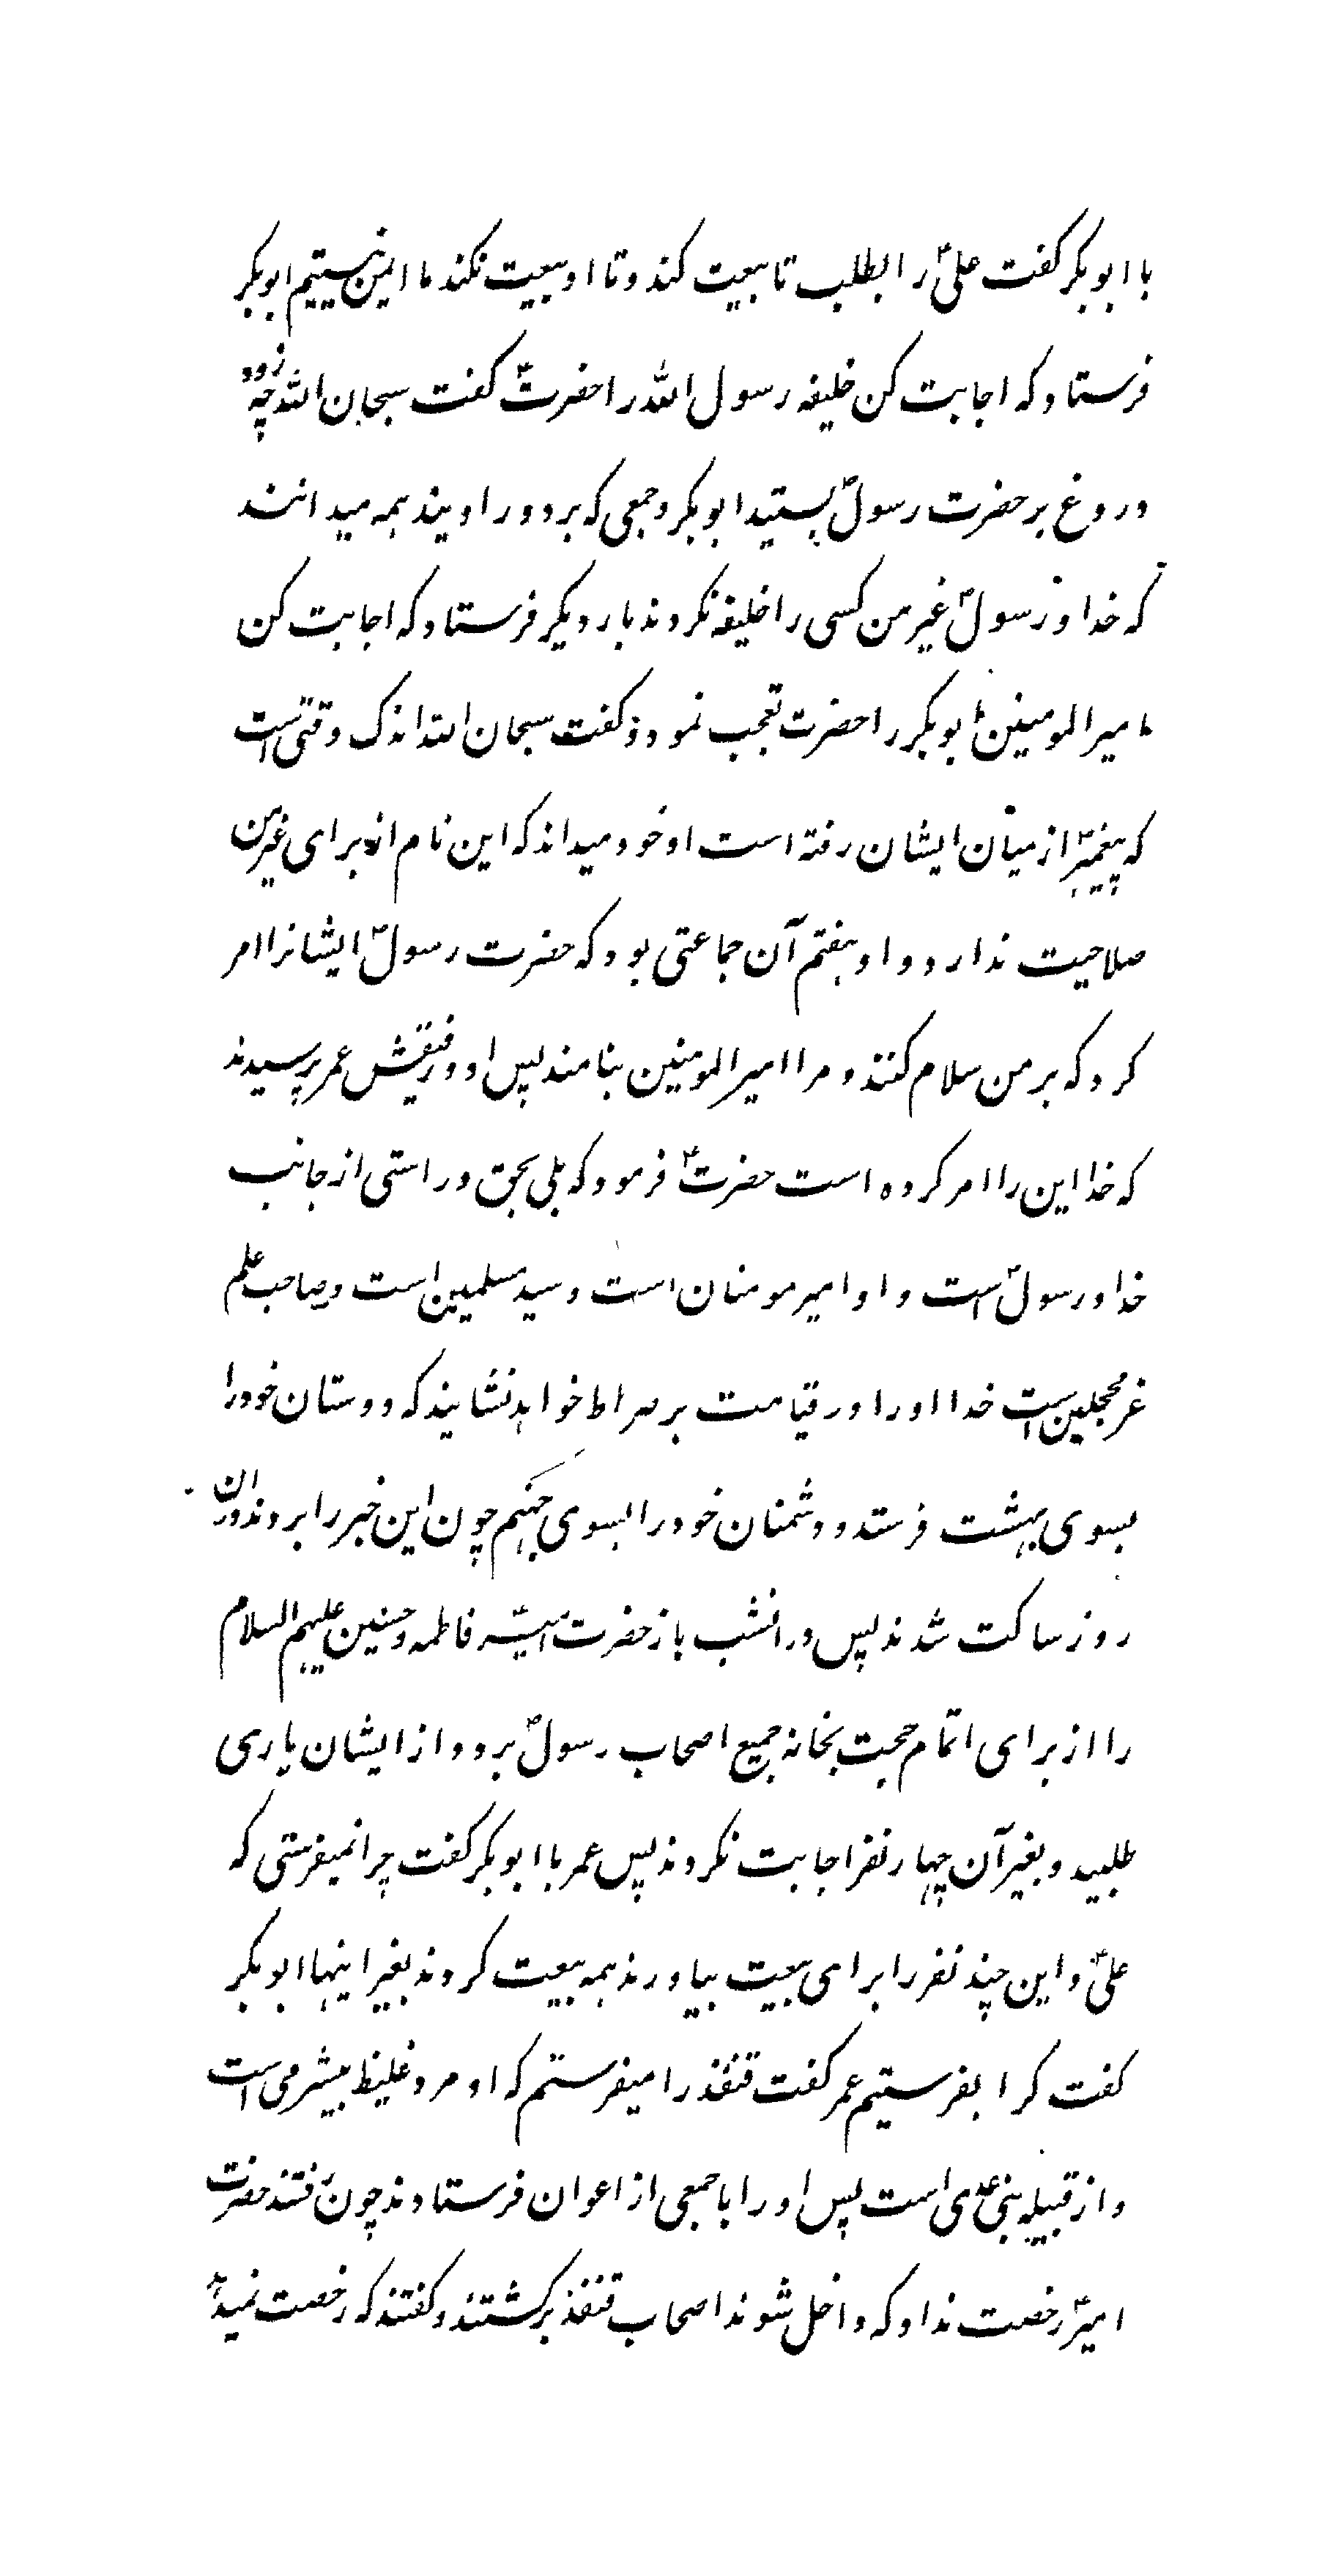 با ابوبکر کفت علیؑ را بطلب تا بیعت کند و تا او بیعت نکند ما ایمن نیستیم ابوبکر
فرستاد که اجابت کن خلیفه رسول الله را حضرتؑ کفت سبحان الله چه زود
دروغ بر حضرت رسولؐ بستید ابوبکر و جمعی که بر دور اویند همه میدانند
که خدا و رسولؐ غیر من کسی را خلیفه نکردند بار دیکر فرستاد که اجابت کن
امیر المومنین ابوبکر را حضرت تعجب نمود و کفت سبحان الله اندک وقتی است
که پیغمبرؐ از میان ایشان رفته است او خود میداند که این نام از برای غیر من
صلاحیت ندارد و او هفتم آن جماعتی بود که حضرت رسولؐ ایشانرا امر
کرد که بر من سلام کنند و مرا امیر المومنین بنامند پس او و رفیقش عمر پرسیدند
که خدا این را امر کرده است حضرتؐ فرمود که بلی بحق و راستی از جانب
خدا و رسولؐ است و او امیر مومنان است و سید مسلمین است و صاحب علم
غر محجلین است خدا او را در قیامت بر صراط خواهد نشانید که دوستان خود را
بسوی بهشت فرستد و دشمنان خود را بسوی جهنم چون این خبر را بردند دران
روز ساکت شدند پس در انشب باز حضرت امیرؑ فاطمه و حسنین علیهم السلام
را از برای اتمام حجت بخانه جمیع اصحاب رسولؐ برد و از ایشان یاری
طلبید و بغیر آن چهار نفر اجابت نکردند پس عمر با ابوبکر کفت چرا نمیفرستی که
علیؑ و این چند نفر را برای بیعت بیاورند همه بیعت کردند بغیر اینها ابوبکر
کفت کرا بفرستیم عمر کفت قنفذ را میفرستم که او مرد غلیظ بیشرمی است
و از قبیله بنی عدی است پس او را با جمعی از اعوان فرستادند چون رفتند حضرت
امیرؑ رخصت نداد که داخل شوند اصحاب قنفذ برکشتند و کفتند که رخصت نمیدهد